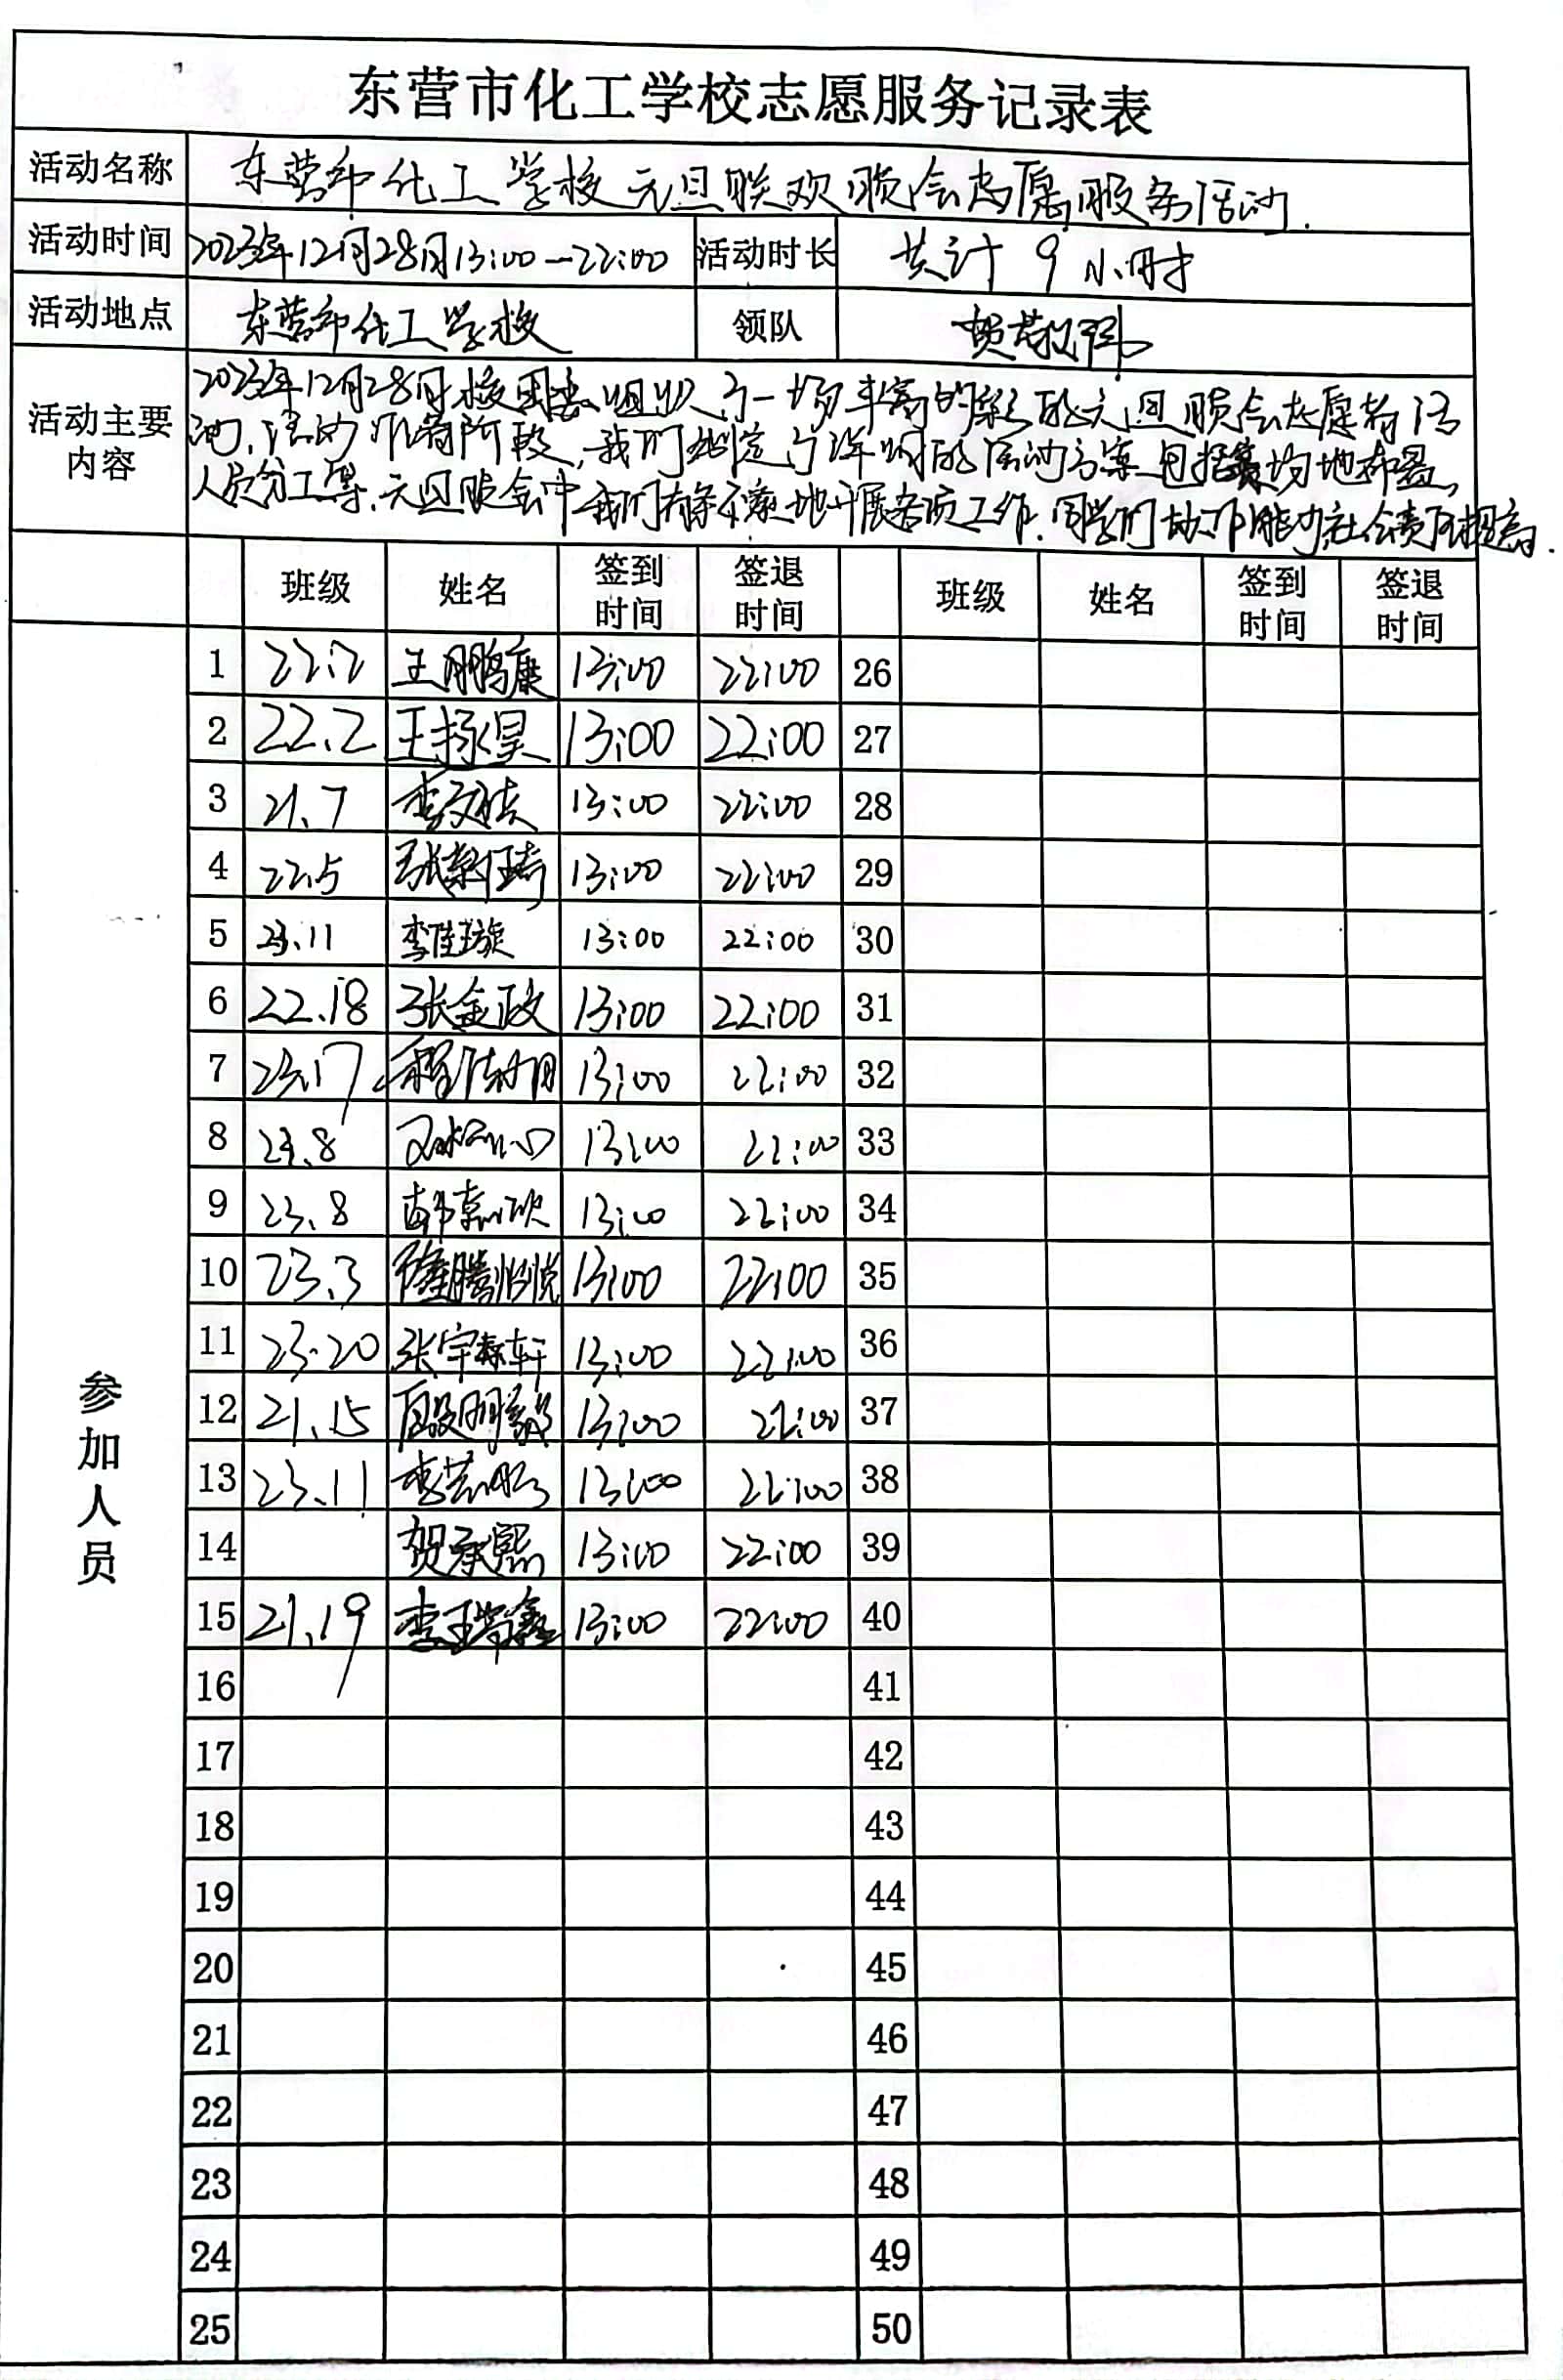 东营市化工学校志愿服务记录表
活动名称 东营市化工学校元旦联欢晚会志愿服务活动.
活动时间 2023年12月28日13:00—22:00 活动时长 共计 9 小时
活动地点 东营市化工学校 领队 贺敬伟
活动主要内容
2023年12月28日校团委组织了一场丰富的彩元旦晚会志愿者活
动,活动准备阶段,我们制定了详细的活动方案包括场地布置,
人员分工等.元旦晚会中我们有条不紊地开展各项工作.同学们协作能力社会责任提高.
班级 姓名 签到时间 签退时间 班级 姓名 签到时间 签退时间
参加人员
1 22.2 王鹏康 13:00 22:00 26
2 22.2 王扬昊 13:00 22:00 27
3 21.7 李文 13:00 22:00 28
4 22.5 张 13:00 22:00 29
5 23.11 李佳璇 13:00 22:00 30
6 22.18 张金政 13:00 22:00 31
7 23.17 程 13:00 22:00 32
8 23.8 13:00 22:00 33
9 23.8 韩嘉欣 13:00 22:00 34
10 23.3 隆腾悦 13:00 22:00 35
11 23.20 张宇轩 13:00 22:00 36
12 21.15 殷明毅 13:00 22:00 37
13 23.11 李 13:00 22:00 38
14 贺承熙 13:00 22:00 39
15 21.19 李王鑫 13:00 22:00 40
16 41
17 42
18 43
19 44
20 45
21 46
22 47
23 48
24 49
25 50